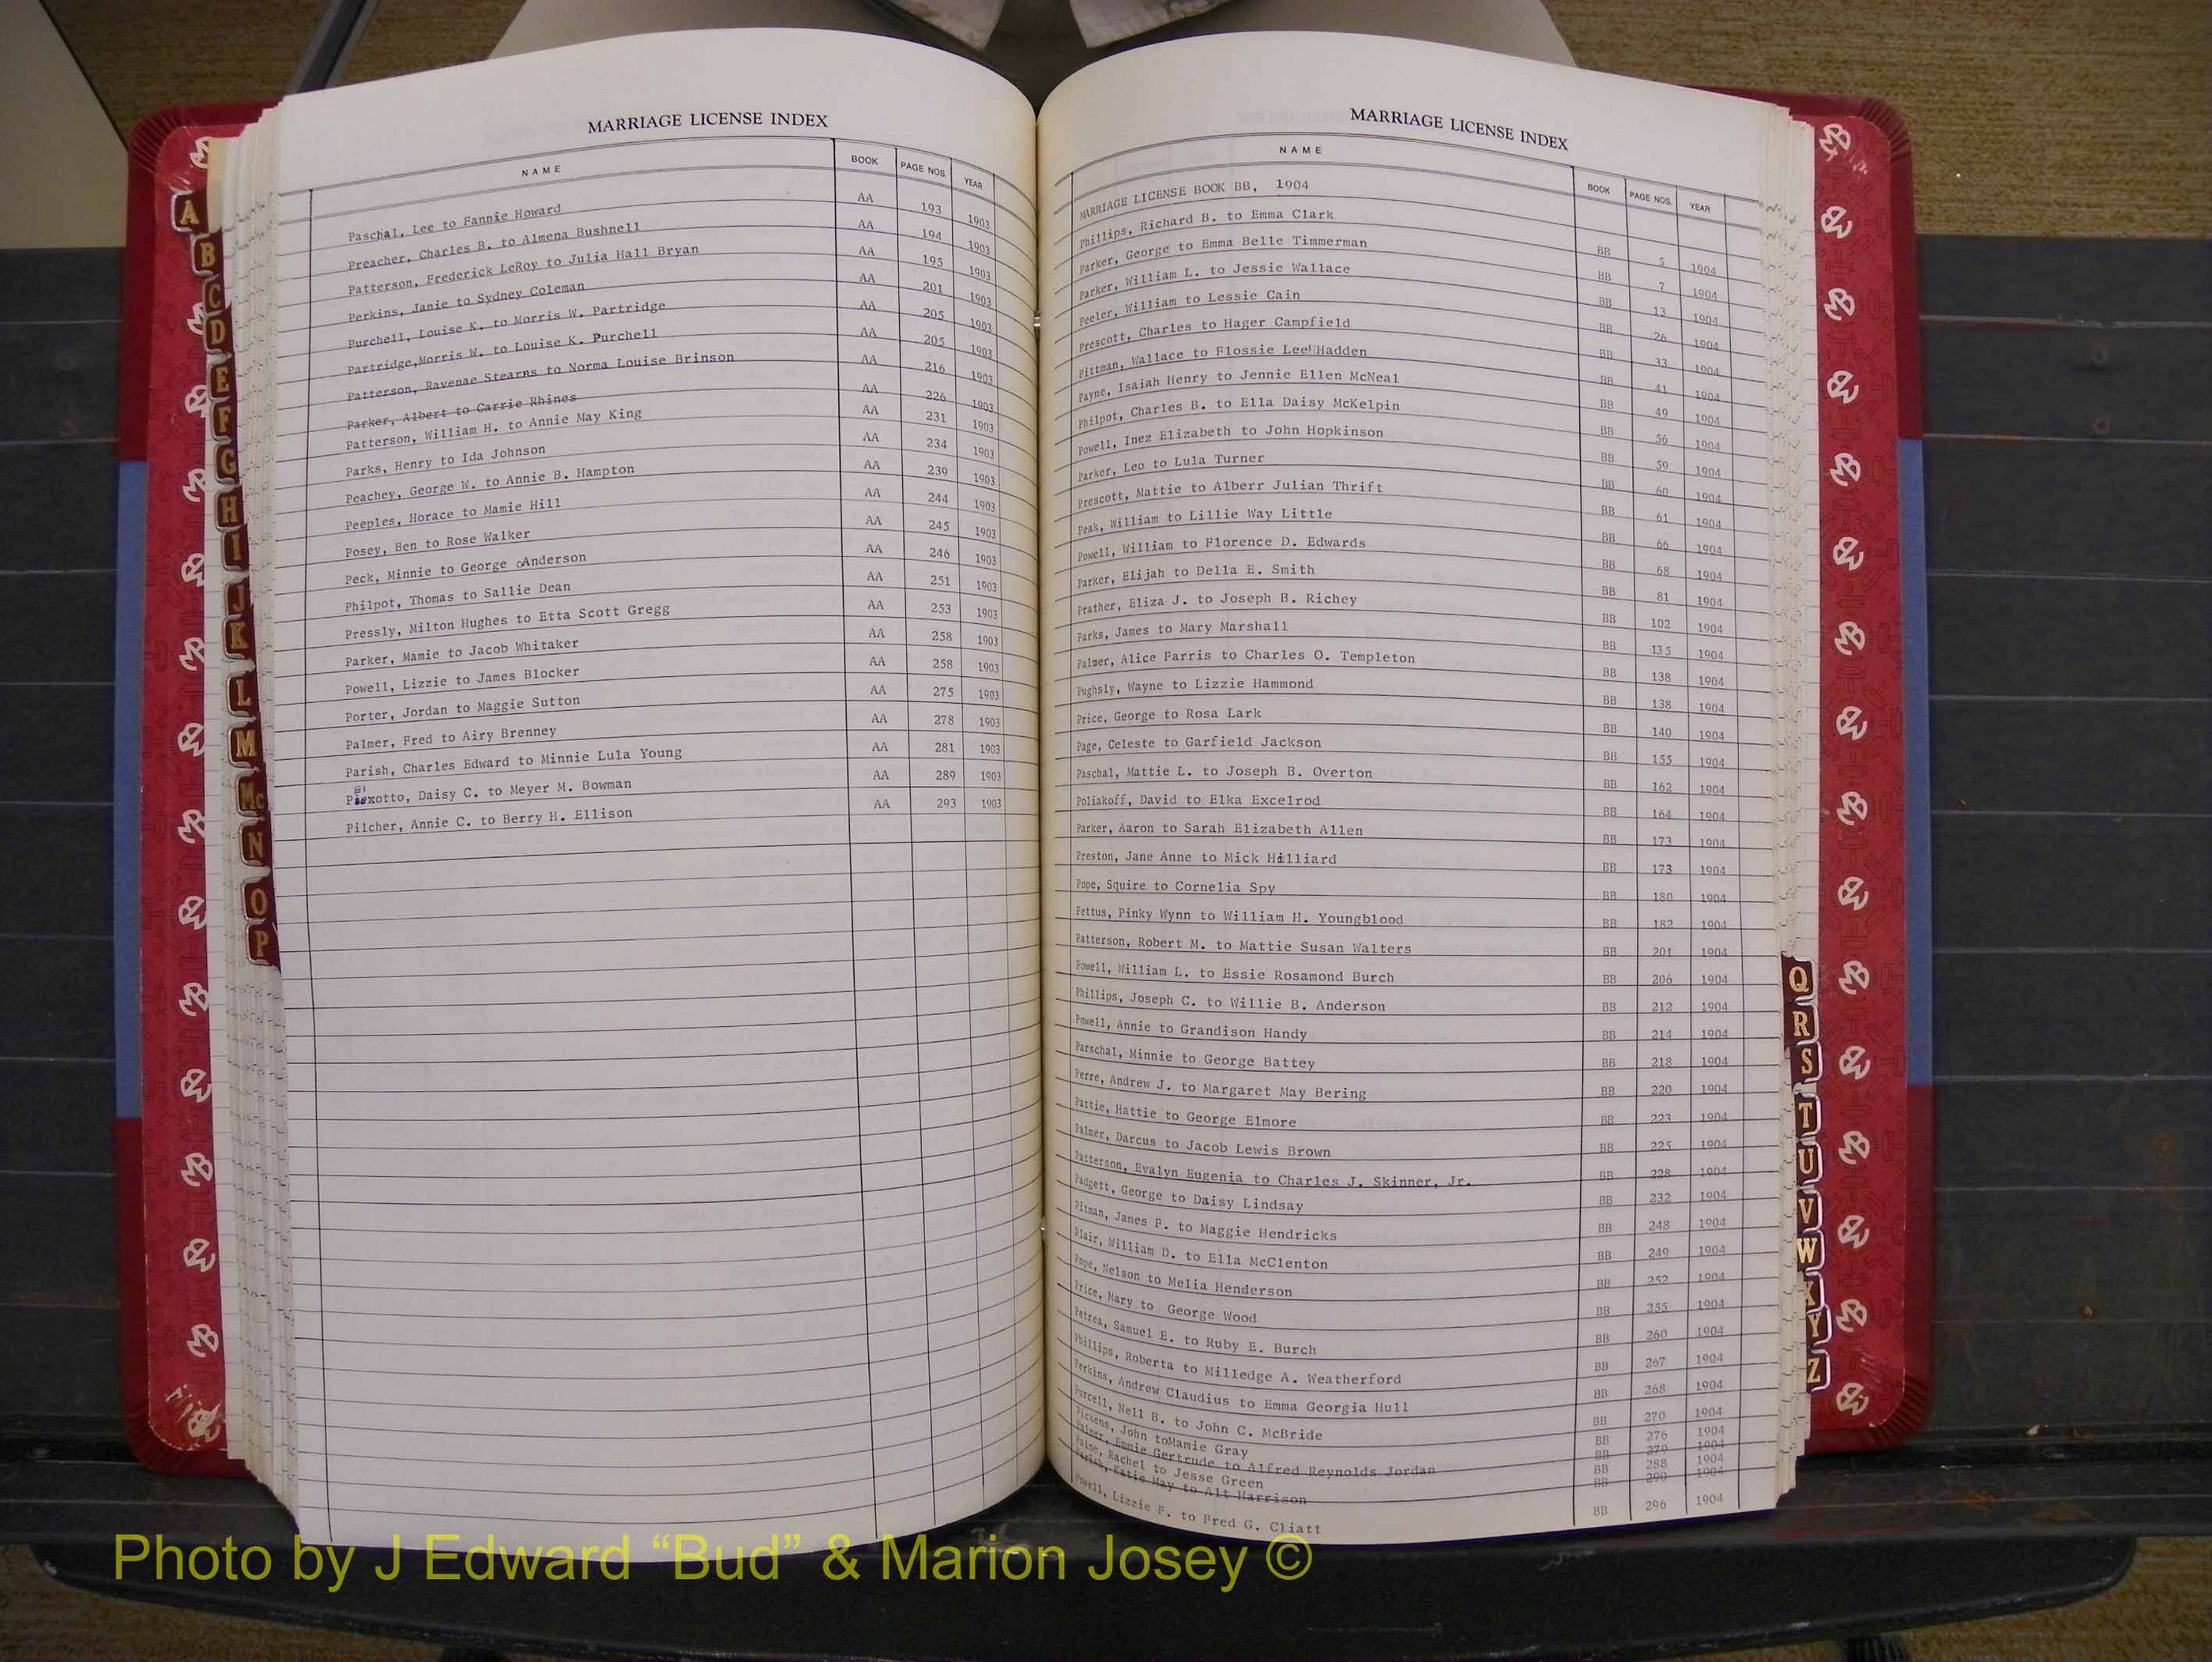 MARRIAGE LICENSE INDEX
NAME BOOK PAGE NOS. YEAR
Paschal, Lee to Fannie Howard AA 193 1903
Preacher, Charles B. to Almena Bushnell AA 194 1903
Patterson, Frederick LeRoy to Julia Hall Bryan AA 195 1903
Perkins, Janie to Sydney Coleman AA 201 1903
Purchell, Louise K. to Morris W. Partridge AA 205 1903
Partridge,Morris W. to Louise K. Purchell AA 205 1903
Patterson, Ravenae Stearns to Norma Louise Brinson AA 216 1903
Parker, Albert to Carrie Rhines AA 226 1903
Patterson, William H. to Annie May King AA 231 1903
Parks, Henry to Ida Johnson AA 234 1903
Peachey, George W. to Annie B. Hampton AA 239 1903
Peeples, Horace to Mamie Hill AA 244 1903
Posey, Ben to Rose Walker AA 245 1903
Peck, Minnie to George Anderson AA 246 1903
Philpot, Thomas to Sallie Dean AA 251 1903
Pressly, Milton Hughes to Etta Scott Gregg AA 253 1903
Parker, Mamie to Jacob Whitaker AA 258 1903
Powell, Lizzie to James Blocker AA 258 1903
Porter, Jordan to Maggie Sutton AA 275 1903
Palmer, Fred to Airy Brenney AA 278 1903
Parish, Charles Edward to Minnie Lula Young AA 281 1903
Peixotto, Daisy C. to Meyer M. Bowman AA 289 1903
Pilcher, Annie C. to Berry H. Ellison AA 293 1903
A
B
C
D
E
F
G
H
I
J
K
L
M
Mc
N
O
P
MARRIAGE LICENSE INDEX
NAME BOOK PAGE NOS. YEAR
MARRIAGE LICENSE BOOK BB, 1904
Phillips, Richard B. to Emma Clark BB 5 1904
Parker, George to Emma Belle Timmerman BB 7 1904
Parker, William L. to Jessie Wallace BB 13 1904
Peeler, William to Lessie Cain BB 26 1904
Prescott, Charles to Hager Campfield BB 33 1904
Pittman, Wallace to Flossie Lee Hadden BB 41 1904
Payne, Isaiah Henry to Jennie Ellen McNeal BB 49 1904
Philpot, Charles B. to Ella Daisy McKelpin BB 56 1904
Powell, Inez Elizabeth to John Hopkinson BB 59 1904
Parker, Leo to Lula Turner BB 60 1904
Prescott, Mattie to Alberr Julian Thrift BB 61 1904
Peak, William to Lillie Way Little BB 66 1904
Powell, William to Florence D. Edwards BB 68 1904
Parker, Elijah to Della E. Smith BB 81 1904
Prather, Eliza J. to Joseph B. Richey BB 102 1904
Parks, James to Mary Marshall BB 135 1904
Palmer, Alice Farris to Charles O. Templeton BB 138 1904
Pughsly, Wayne to Lizzie Hammond BB 138 1904
Price, George to Rosa Lark BB 140 1904
Page, Celeste to Garfield Jackson BB 155 1904
Paschal, Mattie L. to Joseph B. Overton BB 162 1904
Poliakoff, David to Elka Excelrod BB 164 1904
Parker, Aaron to Sarah Elizabeth Allen BB 173 1904
Preston, Jane Anne to Mick Hilliard BB 173 1904
Pope, Squire to Cornelia Spy BB 180 1904
Pettus, Pinky Wynn to William H. Youngblood BB 182 1904
Patterson, Robert M. to Mattie Susan Walters BB 201 1904
Powell, William L. to Essie Rosamond Burch BB 206 1904
Phillips, Joseph C. to Willie B. Anderson BB 212 1904
Powell, Annie to Grandison Handy BB 214 1904
Parschal, Minnie to George Battey BB 218 1904
Perre, Andrew J. to Margaret May Bering BB 220 1904
Pattie, Hattie to George Elmore BB 223 1904
Palmer, Darcus to Jacob Lewis Brown BB 225 1904
Patterson, Evalyn Eugenia to Charles J. Skinner, Jr. BB 228 1904
Padgett, George to Daisy Lindsay BB 232 1904
Pitman, James F. to Maggie Hendricks BB 248 1904
Plair, William D. to Ella McClenton BB 249 1904
Pope, Nelson to Melia Henderson BB 252 1904
Price, Mary to George Wood BB 255 1904
Petrea, Samuel E. to Ruby E. Burch BB 260 1904
Phillips, Roberta to Milledge A. Weatherford BB 267 1904
Perkins, Andrew Claudius to Emma Georgia Hull BB 268 1904
Purcell, Nell B. to John C. McBride BB 270 1904
Pickens, John toMamie Gray BB 276 1904
Palmer, Emmie Gertrude to Alfred Reynolds Jordan BB 279 1904
Paine, Rachel to Jesse Green BB 288 1904
Parish, Katie May to Alt Harrison BB 290 1904
Powell, Lizzie F. to Fred G. Cliatt BB 296 1904
Q
R
S
T
U
V
W
X
Y
Z
Photo by J Edward “Bud” & Marion Josey ©